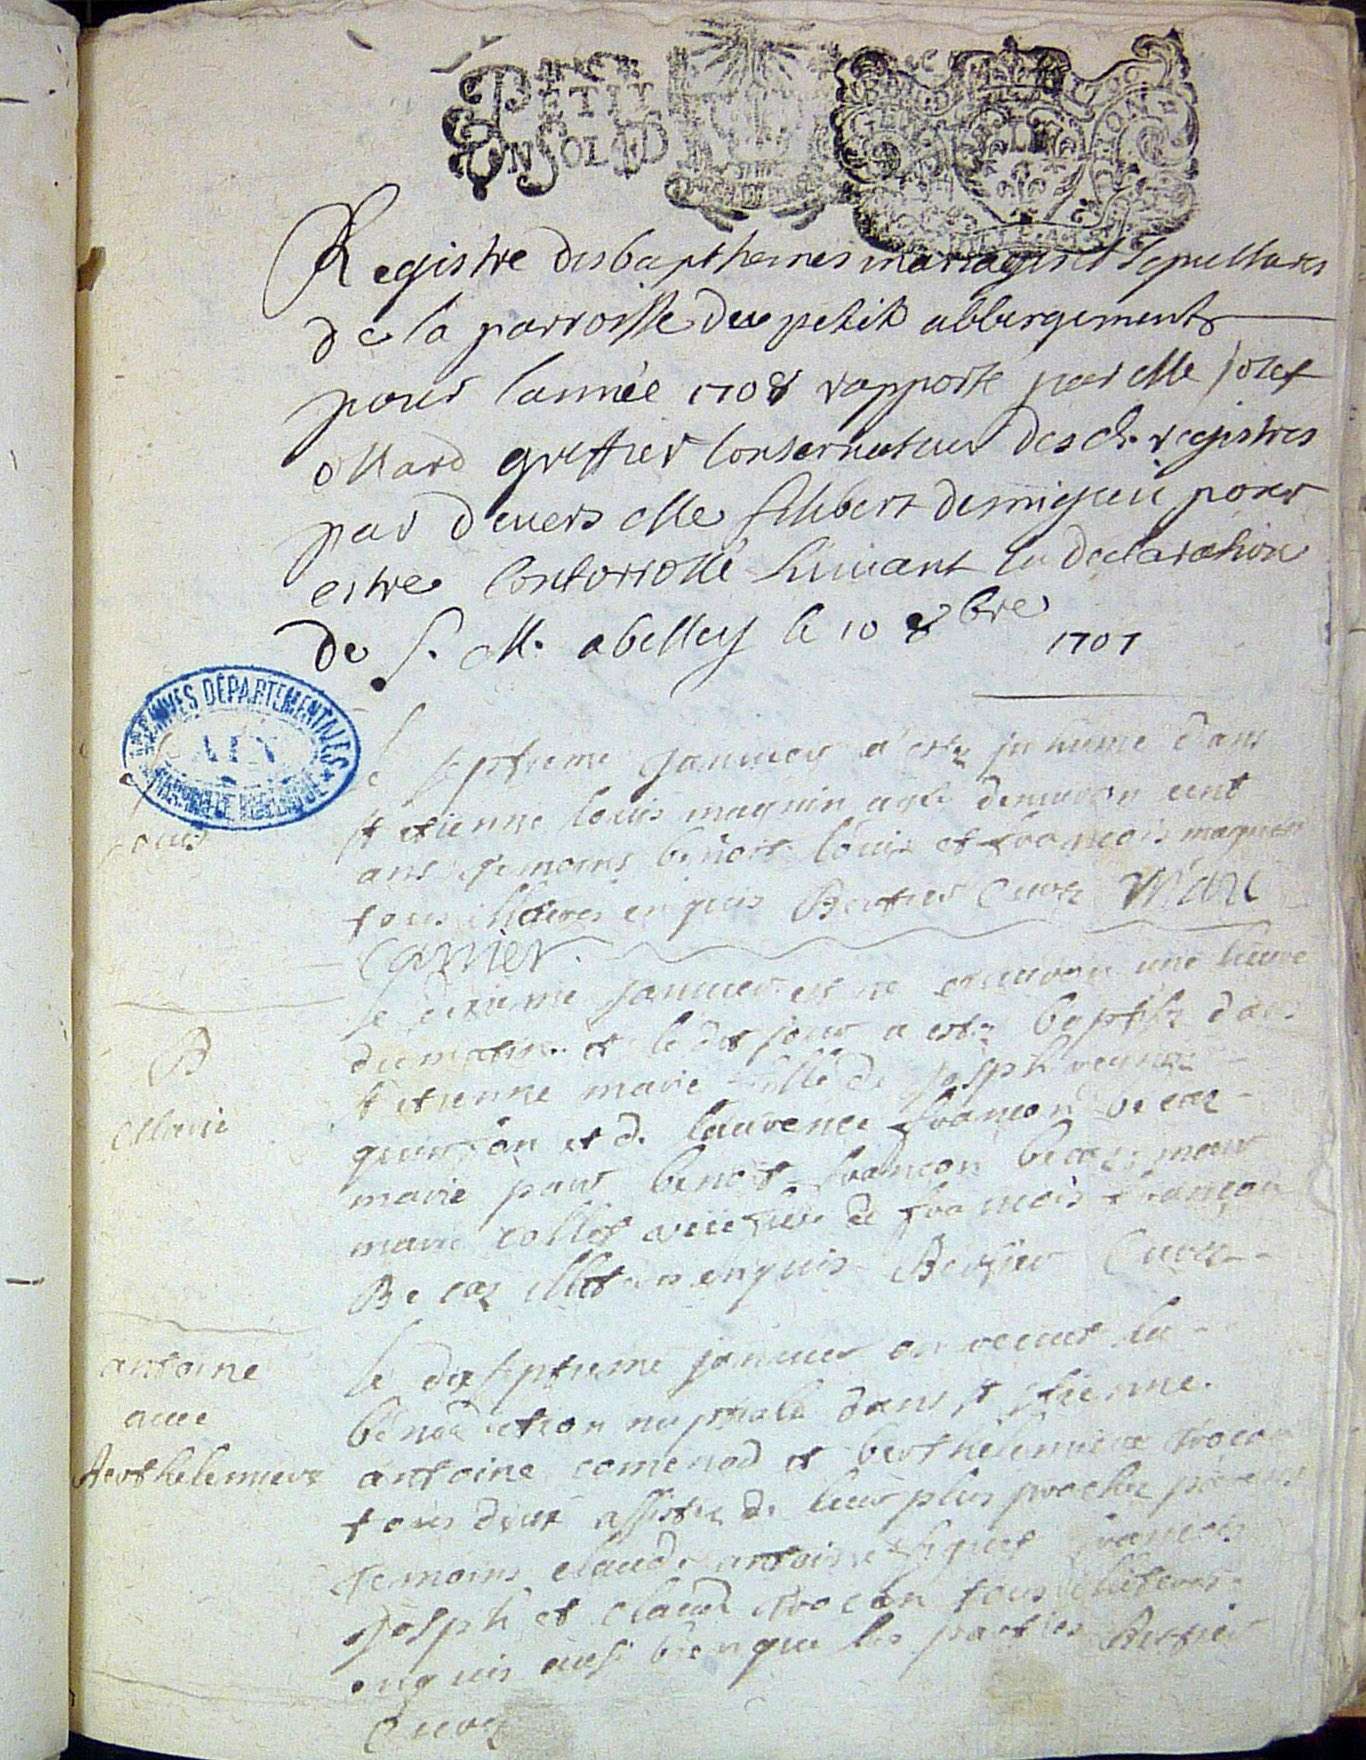 PETIT
UN SOL LA D
Registre des bapthemes mariages et sepultures
de la parroisse du petit abbergement
pour l'année 1708 rapporté par Me Josef
ollard greffier Conservateur des d. registres
par devers Me filibert demigieu pour
estre Contorrollé suivant la declaration
de S. M. a belley le 10 8bre 1707
ARCHIVES DÉPARTEMENTALES
AIN
le septieme janvier a este inhume dans
st etienne louis magnin agé denviron cent
ans temoins benoit louis et francois magnin
tous illiteres enquis Bertier Curé Marc
Carrier
le dixieme janvier est ne environ une heure
du matin et le dit jour a este baptisé dans
B
st etienne marie fille de joseph
Marie
et de laurence francon becaz
marie parr benoit francon becaz marr
marie collet de francois francon
Becaz illiteres enquis Bertier Curé
antoine
avec
Berthelemieve
le dixseptieme janvier on receut la
bénédiction nuptiale dans st etienne
antoine comenod et berthelemieve trocon
tous deux assisté de leur plus proche parens
temoins claude antoine francois
joseph et claude trocon tous illiteres
enquis aussi bien que les parties Bertier
Curé